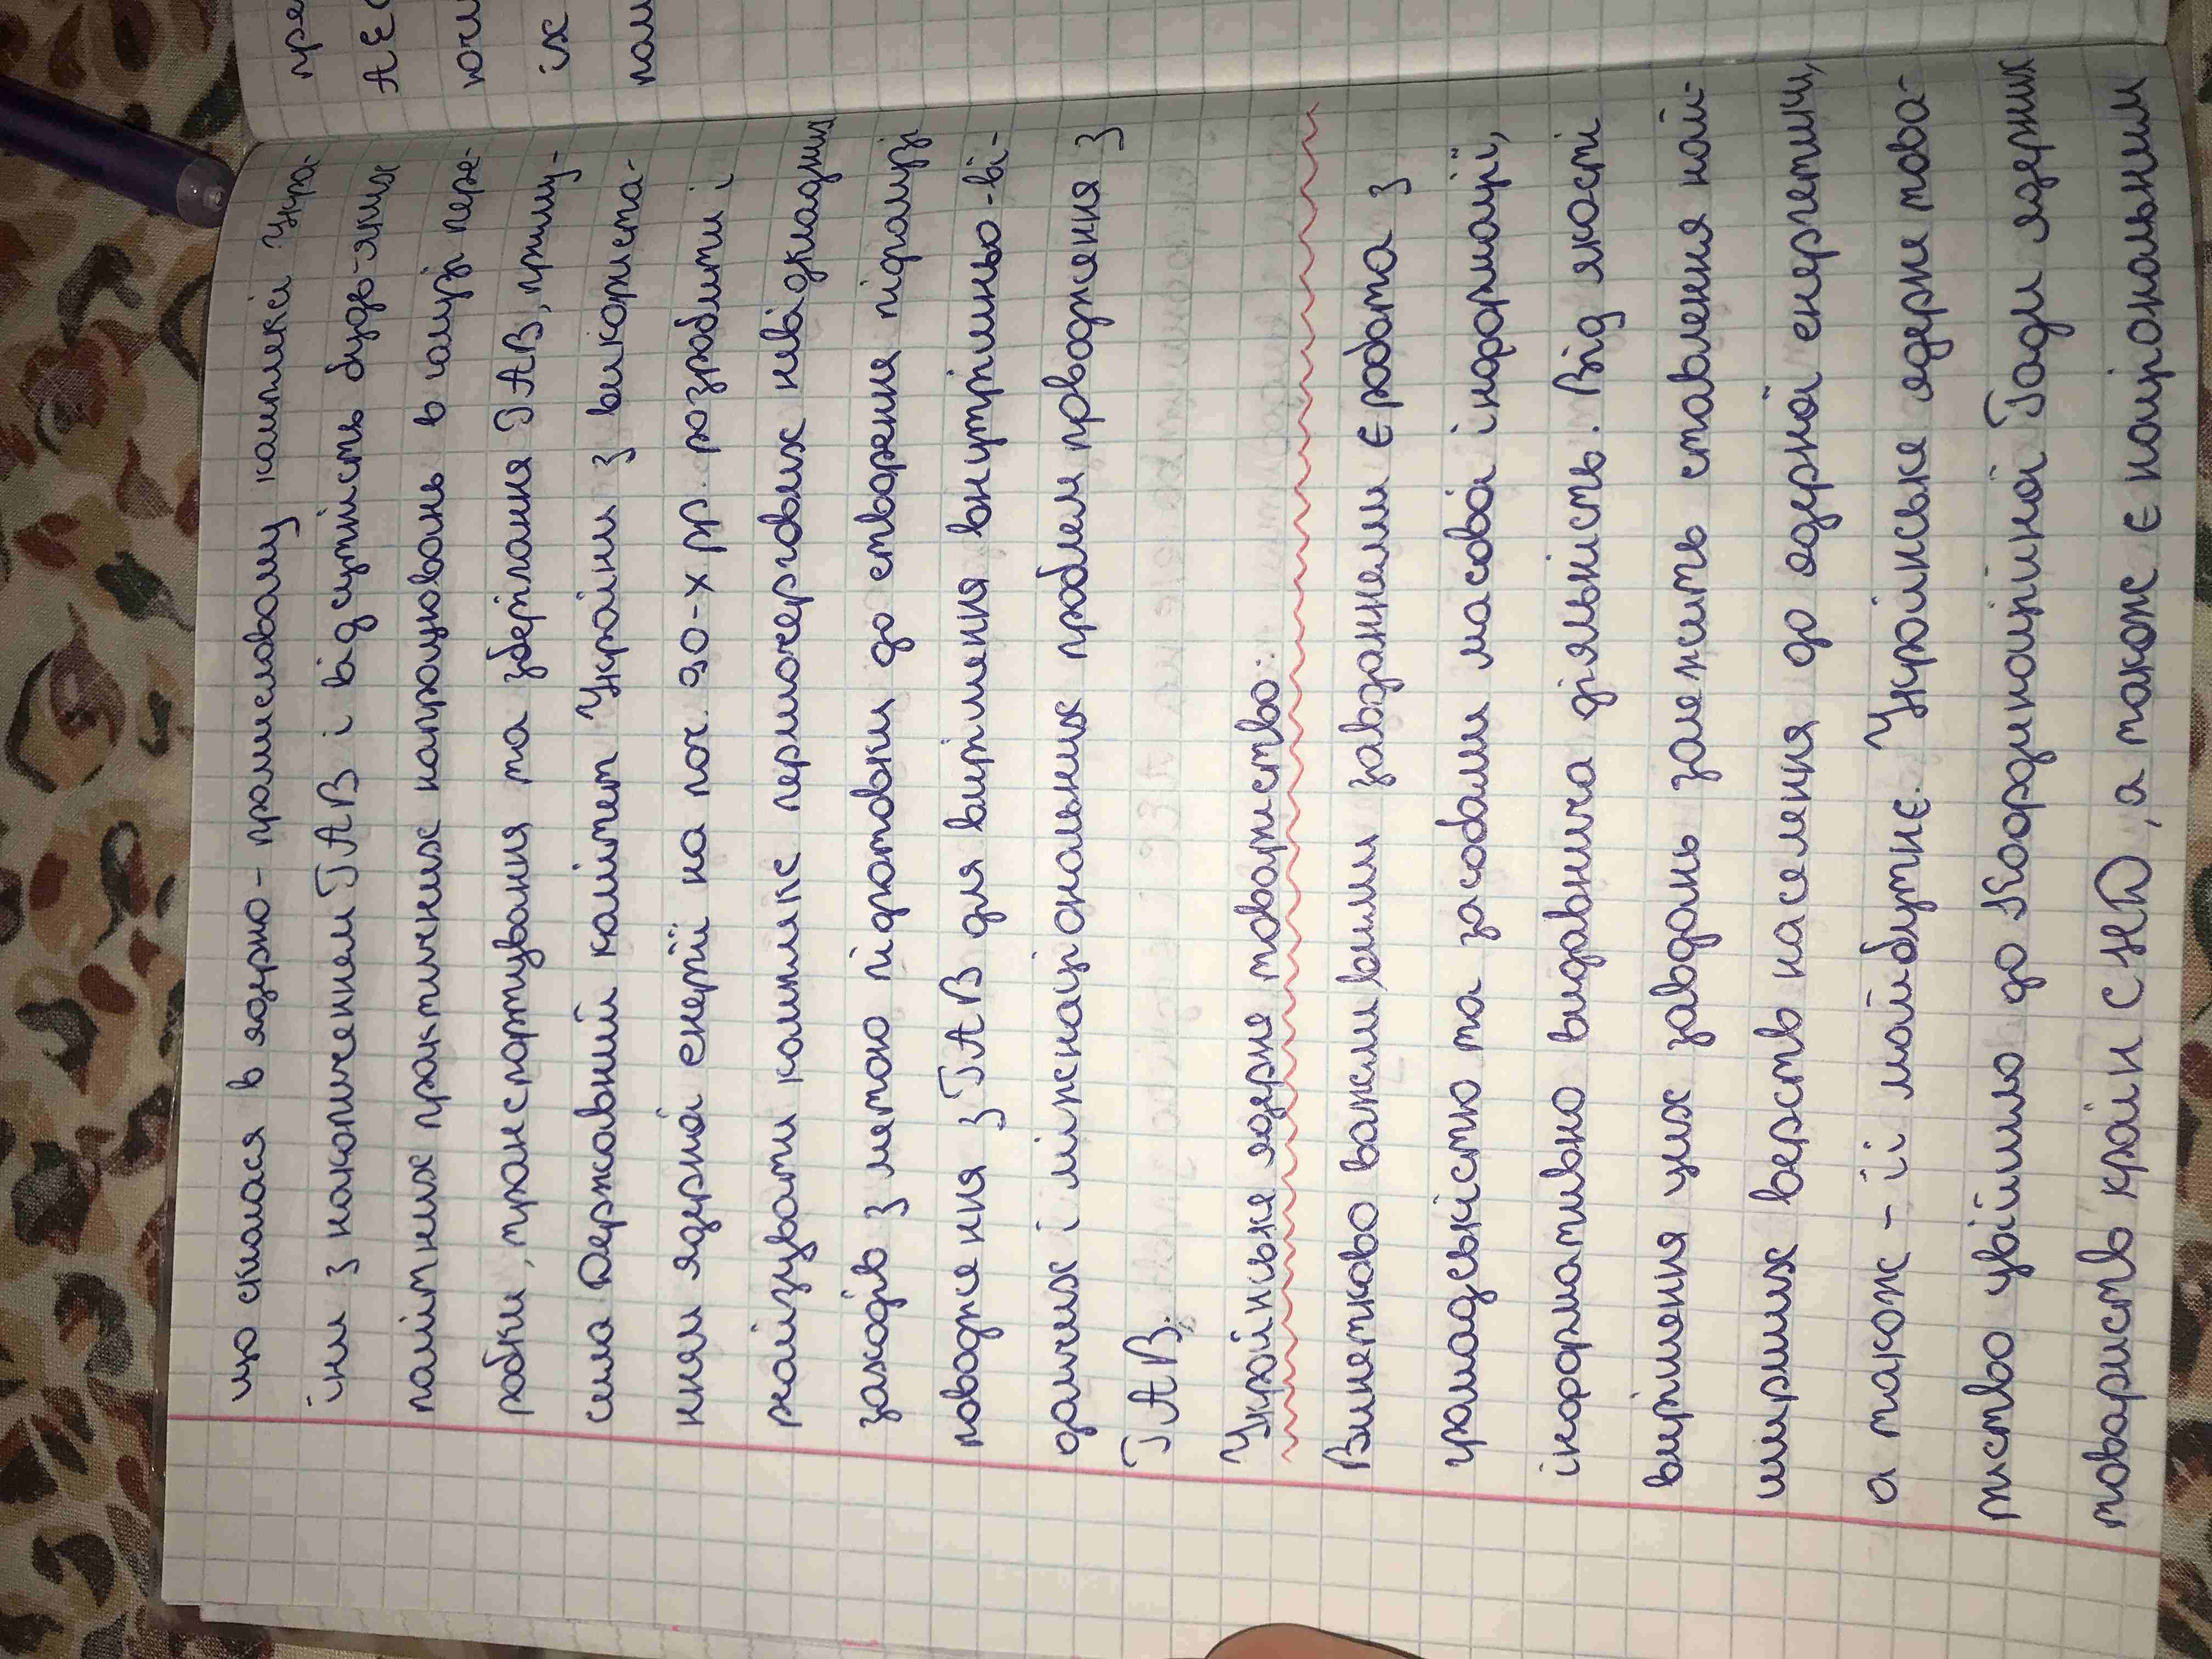 що склася в ядерно-промисловому комплексі Укра-
їни з накопиченнем РАВ і відсутність будь-яких
помітних практичних напрацювань в галузі пере-
робки, транспортування та зберігання РАВ, приму-
сила Державний комітет України з використа-
ння ядерної енергії на поч. 90-х рр. розробити і
реалізувати комплекс першочергових невідкладних
заходів з метою підготовки до створення підгалузі
поводження з РАВ для вирішення внутрішньо-ві-
домчих і міжнаціональних проблем проводження з
РАВ.
Українське ядерне товариство:
Винятково важливим завданнем є робота з
громадськістю та засобами масової інформації,
інформативно видавнича діяльність. Від якості
вирішення цих завдань залежить ставлення най-
ширших верств населення до ядерної енергетики,
а також - її майбутнє. Українське ядерне това-
риство увійшло до Координаційної Ради ядерних
товариств країн СНД, а також є національним
пре
АЕС
ючи
їх
пам